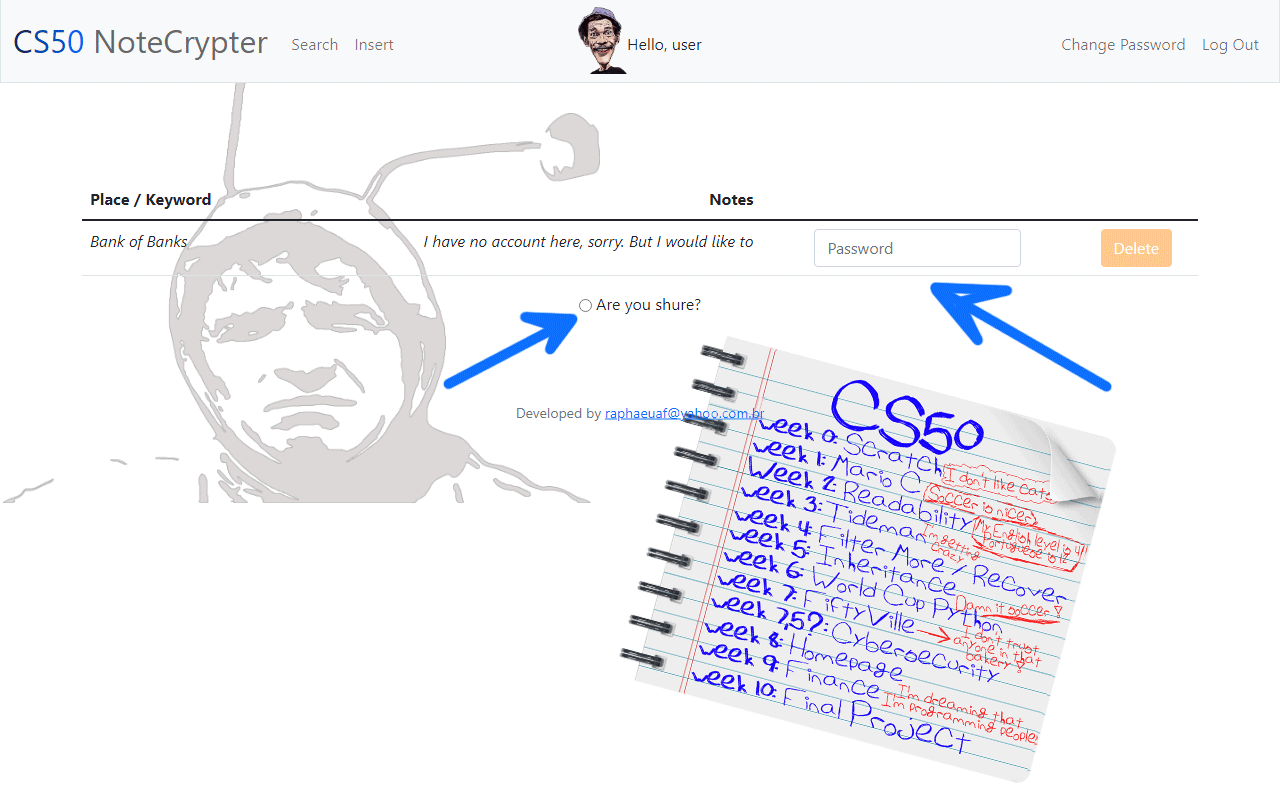 CS50 NoteCrypter Search Insert Hello, user Change Password Log Out
Place / Keyword Notes
Bank of Banks I have no account here, sorry. But I would like to Password Delete
Are you shure?
Developed by raphaeuaf@yahoo.com.br
CS50
week 0: Scratch
I don't like cats
week 1: Mario C
Soccer is nicer
Week 2: Readability
My English level is 4!
Portuguese is 12
week 3: Tideman
I'm getting
crazy
week 4: Filter More / Recover
week 5: Inheritance
week 6: World Cup Python
Damn it soccer!
week 7: FiftyVille
I don't trust
anyone in that
bakery!
week 7,5?: Cybersecurity
week 8: Homepage
week 9: Finance
I'm dreaming that
I'm programming people
week 10: Final Project